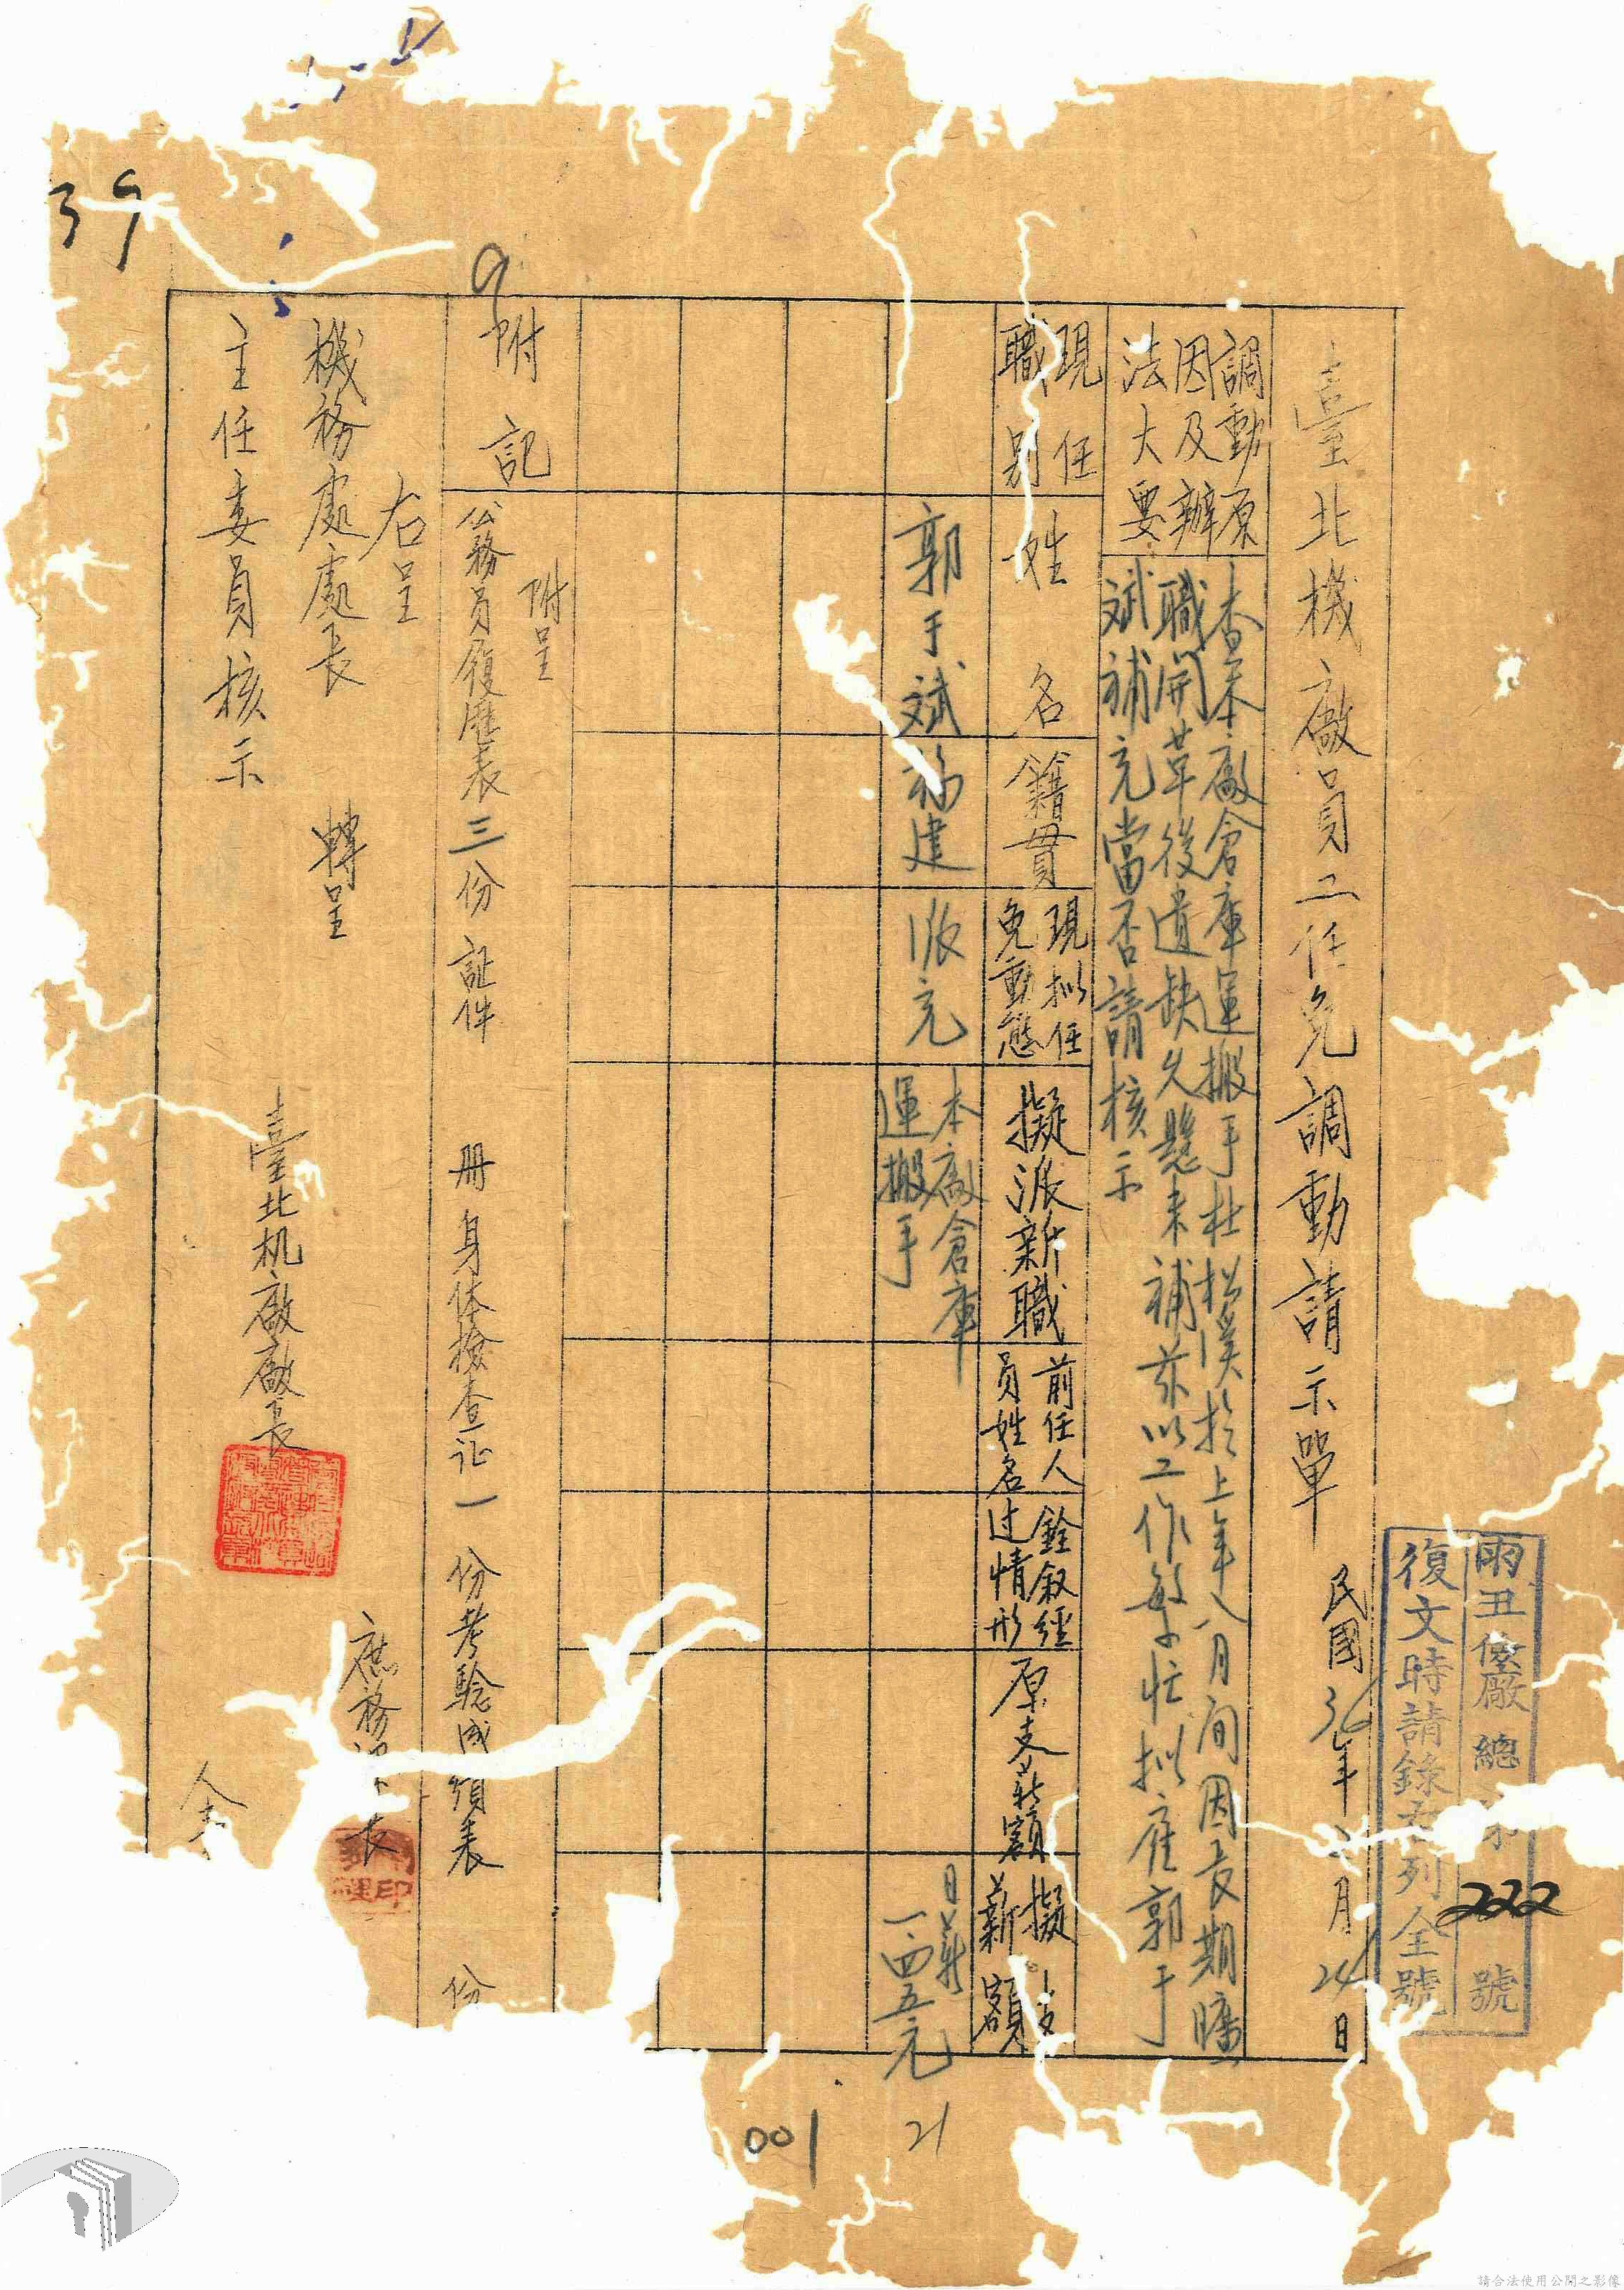 雨丑 廠總 第222號
復文時請錄右列全號
臺北機廠員工任免調動請示單
民國36年 月24日
調動原
因及辦
法大要
查本廠倉庫運搬手杜松溪於上年八月間因長期曠
職開革後遺缺久懸未補茲以工作敏多忙拟雇郭于
斌補充當否請核示
現任
職別
姓名
籍貫
現拟任
免動態
擬派新職
前任人
員姓名
銓敘經
过情形
原支薪額
擬支
薪額
郭于斌
福建
派充
本廠倉庫
運搬手
日薪
一四五元
附記
附呈
公務員履歷表三份 証件 册 身体檢查证一份考驗成績表 份
右呈
機務處處長 轉呈
主任委員核示
臺北机廠廠長
庶務 長
39
9
001
21
請合法使用公開之影像